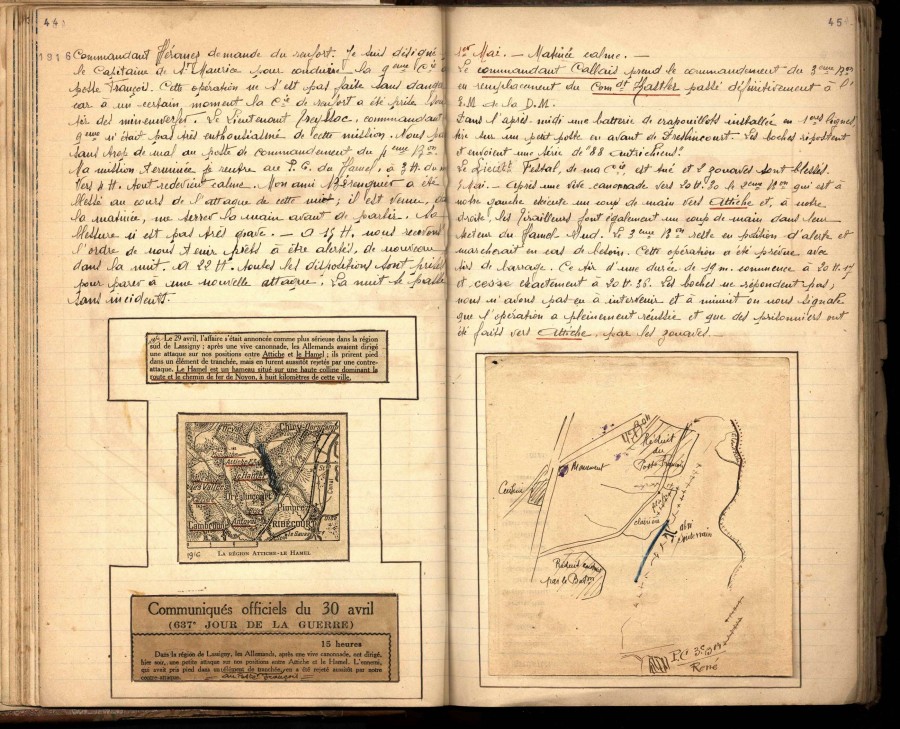 44
1916 Commandant demande du renfort. Je suis désigné
le Capitaine de St Maurice pour conduire la 9ème Cie
poste François. Cette opération ne s'est pas faite sans danger
car à un certain moment la Cie de renfort a été prise sous
tir des minenwerfer. Le Lieutenant commandant
9ème n'était pas très enthousiasmé de cette mission. Nous
sans trop de mal au poste de commandement du 4ème Bon.
Ma mission terminée je rentre au P.C. du Hamel, à 3 H. du
Vers 4 H. tout redevient calme. Mon ami Bérenguier a été
blessé au cours de l'attaque de cette nuit ; il est venu, dans
la matinée, me serrer la main avant de partir. Sa
blessure n'est pas très grave. — A 15 H. nous recevons
l'ordre de nous tenir prêts à être alertés de nouveau
dans la nuit. A 22 H. toutes les dispositions sont prises
pour parer à une nouvelle attaque. La nuit se passe
sans incidents.
Le 29 avril, l'affaire s'était annoncée comme plus sérieuse dans la région
sud de Lassigny ; après une vive canonnade, les Allemands avaient dirigé
une attaque sur nos positions entre Attiche et le Hamel ; ils prirent pied
dans un élément de tranchée, mais en furent aussitôt rejetés par une contre-
attaque. Le Hamel est un hameau situé sur une haute colline dominant la
route et le chemin de fer de Noyon, à huit kilomètres de cette ville.
Dreslincourt
Pimprez
RIBÉCOURT
1916
LA RÉGION ATTICHE-LE HAMEL
Communiqués officiels du 30 avril
(637e JOUR DE LA GUERRE)
15 heures
Dans la région de Lassigny, les Allemands, après une vive canonnade, ont dirigé,
hier soir, une petite attaque sur nos positions entre Attiche et le Hamel. L'ennemi,
qui avait pris pied dans un élément de tranchée, en a été rejeté aussitôt par notre
contre-attaque.
au Poste François
45
1er Mai. — Matinée calme. —
Le commandant Callais prend le commandement du 3ème Bon
en remplacement du Comdt passé définitivement à l'
E.M. de la D.M.
Dans l'après-midi une batterie de crapouillots installée en 1ères lignes
tire sur un petit poste en avant de Dreslincourt. Les boches ripostent
et envoient une série de "88 autrichiens".
Le Festal, de ma Cie, est tué et 2 zouaves sont blessés.
2 Mai. — Après une vive canonnade vers 20 H. 30 le 2ème Bon qui est à
notre gauche exécute un coup de main vers Attiche et, à notre
droite, les tirailleurs font également un coup de main dans leur
secteur du Hamel Sud. Le 3ème Bon reste en position d'alerte et
marcherait en cas de besoin. Cette opération a été prévue avec
tirs de barrage. Ce tir d'une durée de 19 m. commence à 20 H.
et cesse exactement à 20 H. 38. Les boches ne répondent pas,
nous n'avons pas eu à intervenir et à minuit on nous signale
que l'opération a pleinement réussie et que des prisonniers ont
été faits vers Attiche, par les zouaves.
Réduit
du
Poste François
Monument
abri
souterrain
Réduit
par le Baton
P.C. 3e Bon
René